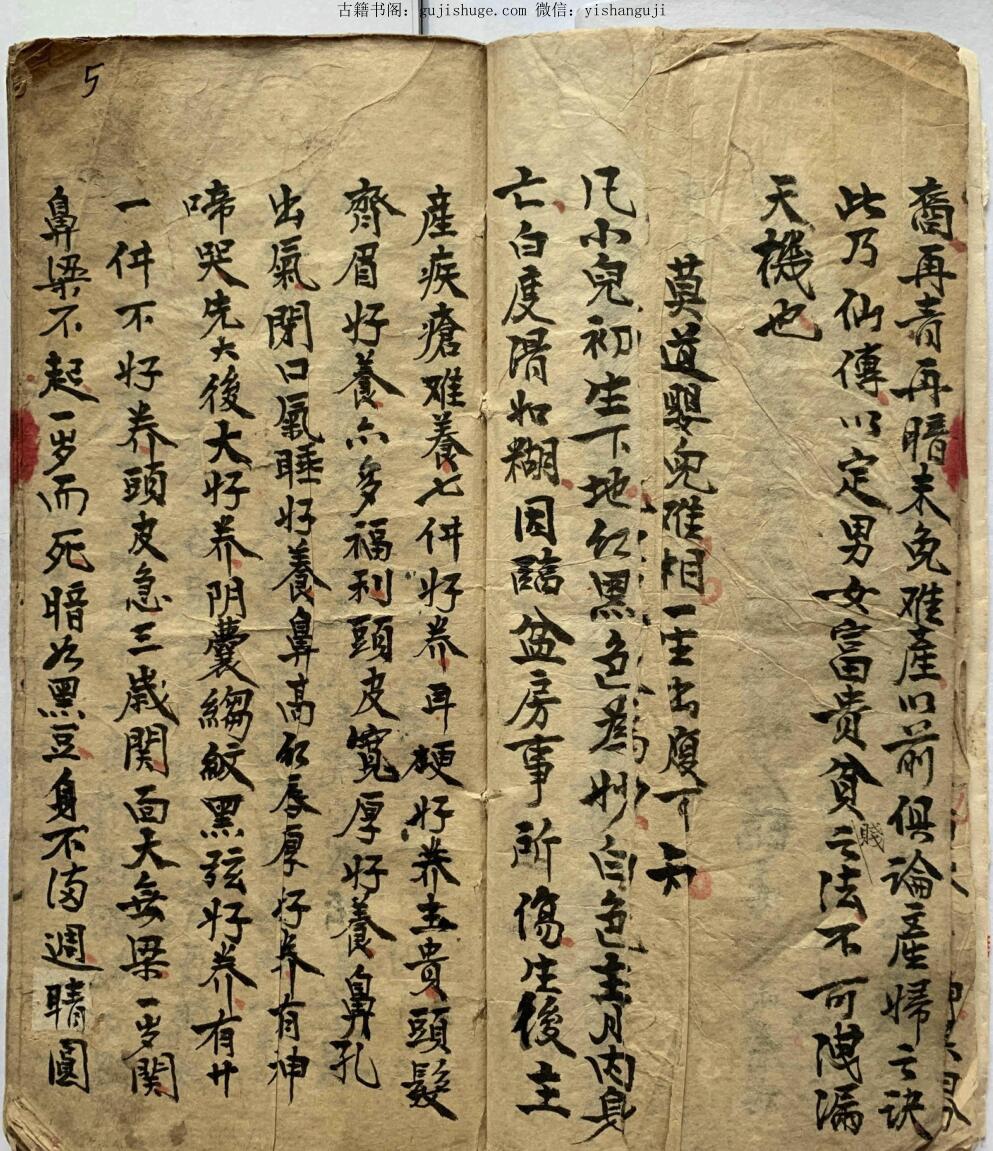 古籍书阁：gujishuge.com 微信：yishanguji
裔再青再暗未免难產以前俱論產婦之訣
此乃仙傳以定男女富貴貧賤之法不可洩漏
天機也
莫道嬰兒难相一生出腹可知
凡小兒初生下地红黑色為妙白色主月內身
亡白度滑如糊因臨盆房事所傷生後主
產疾瘡难養七件好养耳硬好养主貴頭髮
齊眉好養亦多福利頭皮寬厚好養鼻孔
出氣閉口氣睡好養鼻高红唇厚好养有神
啼哭先大後大好养阴囊縐紋黑弦好养有廿
一件不好养頭皮急三歲関面大無梁一岁関
鼻梁不起一岁而死暗如黑豆身不满週睛圓
5